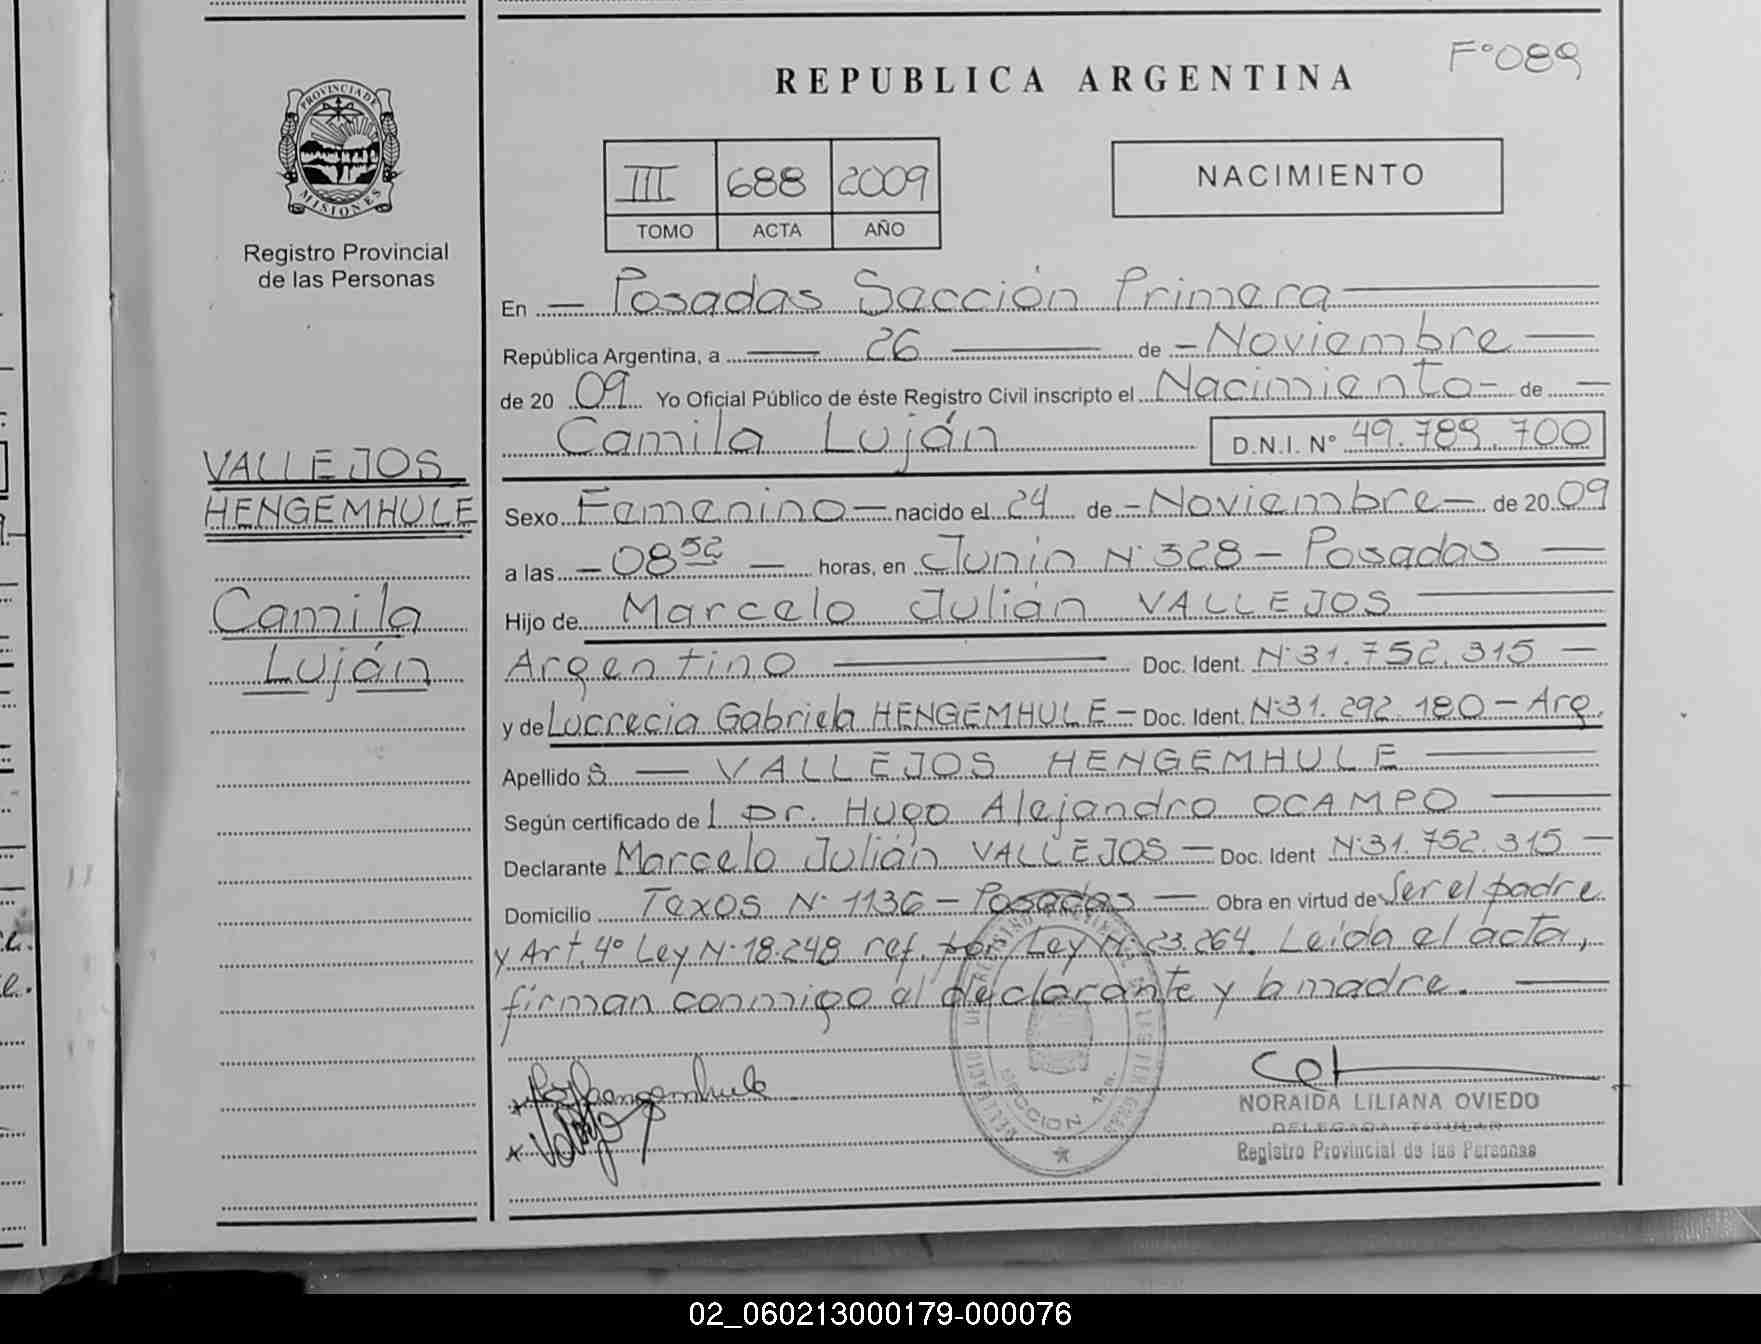 F° 089
REPUBLICA ARGENTINA
PROVINCIA DE
MISIONES
Registro Provincial
de las Personas
III 688 2009
TOMO ACTA AÑO
NACIMIENTO
En — Posadas Sección Primera —
República Argentina, a — 26 — de — Noviembre —
de 20 09 Yo Oficial Público de éste Registro Civil inscripto el Nacimiento — de —
Camila Luján D.N.I. N° 49.789.700
VALLEJOS
HENGEMHULE
Camila
Luján
Sexo Femenino — nacido el 24 de — Noviembre — de 20 09
a las — 08 52 — horas, en Junin N° 328 — Posadas —
Hijo de Marcelo Julián VALLEJOS —
Argentino — Doc. Ident. N° 31.752.315 —
y de Lucrecia Gabriela HENGEMHULE — Doc. Ident. N° 31.292.180 — Arg.
Apellido s — VALLEJOS HENGEMHULE —
Según certificado de l Dr. Hugo Alejandro OCAMPO —
Declarante Marcelo Julián VALLEJOS — Doc. Ident N° 31.752.315 —
Domicilio Texos N° 1136 — Posadas — Obra en virtud de Ser el padre
y Art. 4° Ley N° 18.248 ref. por Ley N° 23.264. Leída el acta,
firman conmigo el declarante y la madre. —
NORAIDA LILIANA OVIEDO
DELEGADA TITULAR
Registro Provincial de las Personas
SECCION 1ra.
02_060213000179-000076